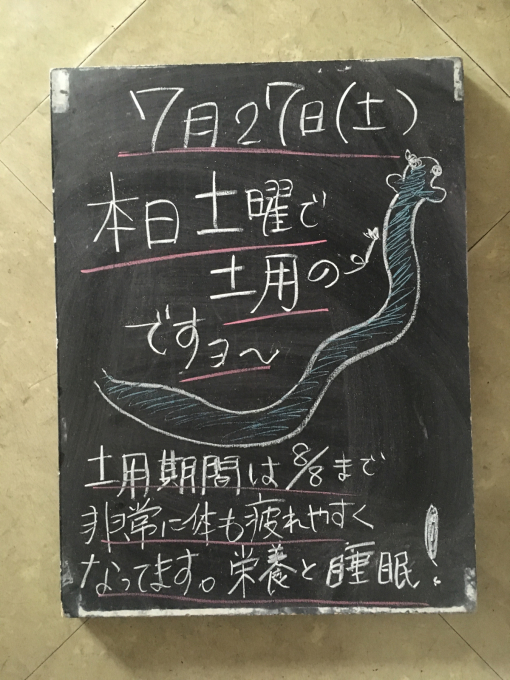 7月27日(土)
本日土曜で
土用の
ですョ〜
土用期間は8/8まで
非常に体も疲れやすく
なってます。栄養と睡眠!